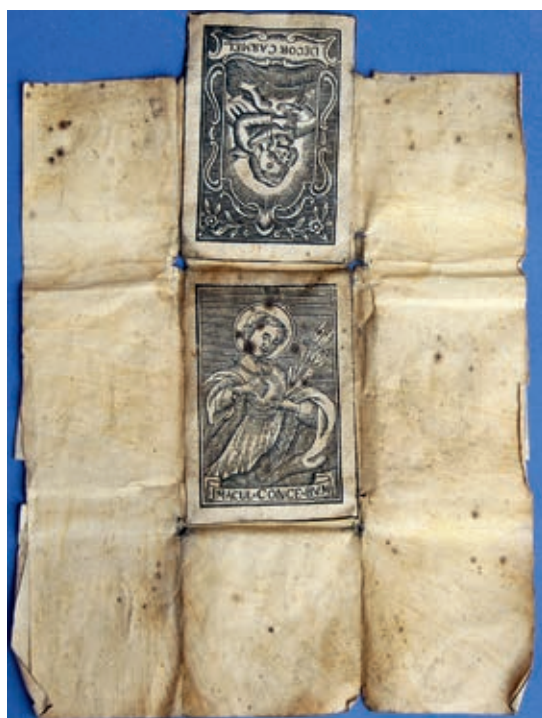 DECOR CARMEL
IMACUL·CONCE·BVM